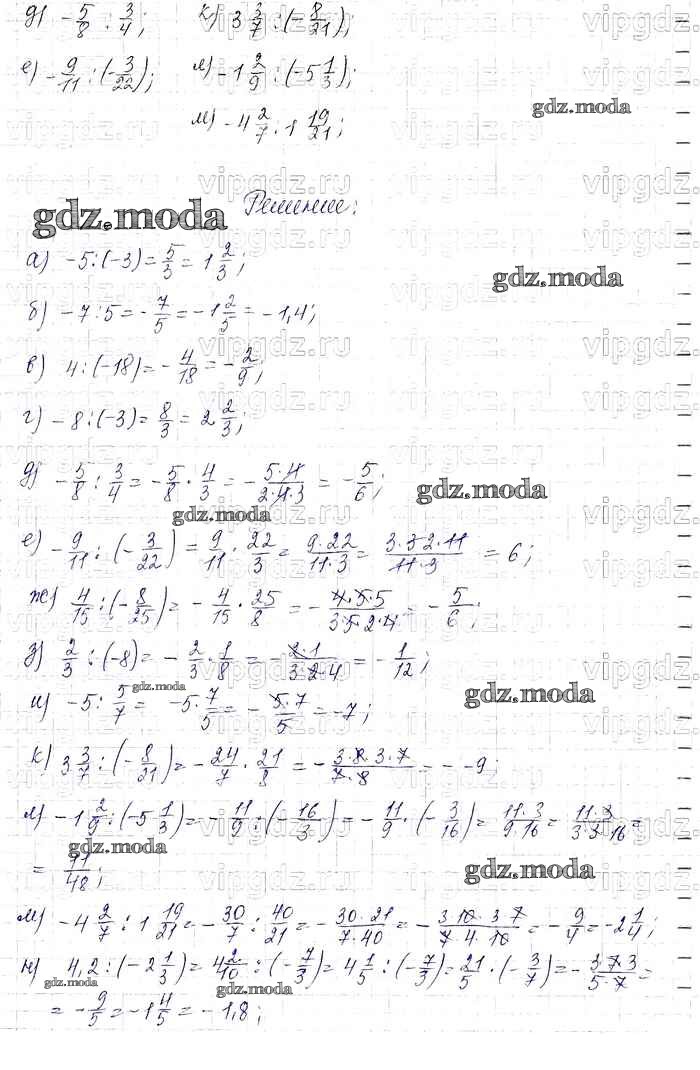 д) -5/8 : 3/4; к) 3 3/7 : (-8/21);
е) -9/11 : (-3/22); л) -1 2/9 : (-5 1/3);
м) -4 2/7 : 1 19/21;
gdz.moda
Решение:
gdz.moda
а) -5 : (-3) = 5/3 = 1 2/3;
gdz.moda
б) -7 : 5 = -7/5 = -1 2/5 = -1,4;
в) 4 : (-18) = -4/18 = -2/9;
г) -8 : (-3) = 8/3 = 2 2/3;
д) -5/8 : 3/4 = -5/8 · 4/3 = -5·4/2·4·3 = -5/6;
gdz.moda
gdz.moda
е) -9/11 : (-3/22) = 9/11 · 22/3 = 9·22/11·3 = 3·3·2·11/11·3 = 6;
ж) 4/15 : (-8/25) = -4/15 · 25/8 = -4·5·5/3·5·2·4 = -5/6;
з) 2/3 : (-8) = -2/3 · 1/8 = -2·1/3·2·4 = -1/12;
gdz.moda
gdz.moda
и) -5 : 5/7 = -5 · 7/5 = -5·7/5 = -7;
к) 3 3/7 : (-8/21) = -24/7 · 21/8 = -3·8·3·7/7·8 = - -9;
л) -1 2/9 : (-5 1/3) = -11/9 : (-16/3) = -11/9 · (-3/16) = 11·3/9·16 = 11·3/3·3·16 =
gdz.moda
= 11/48;
gdz.moda
м) -4 2/7 : 1 19/21 = -30/7 : 40/21 = -30·21/7·40 = -3·10·3·7/7·4·10 = -9/4 = -2 1/4;
н) 4,2 : (-2 1/3) = 4 2/10 : (-7/3) = 4 1/5 : (-7/3) = 21/5 · (-3/7) = -3·7·3/5·7 =
gdz.moda
gdz.moda
= -9/5 = -1 4/5 = -1,8;